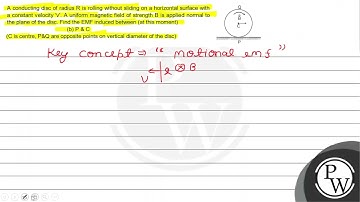 A conducting disc of radius R is rolling without sliding on a horizontal surface with
a constant velocity 'V'. A uniform magnetic field of strength B is applied normal to
the plane of the disc. Find the EMF induced between (at this moment)
(b) P & C
(C is centre, P&Q are opposite points on vertical diameter of the disc)
Q
P
Key concept ⇒ " motional emf "
V ← l ⊗ B
P
W